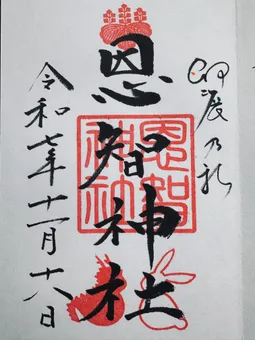 渡乃礼
恩智神社
恩智
神社
令和七年十一月十六日